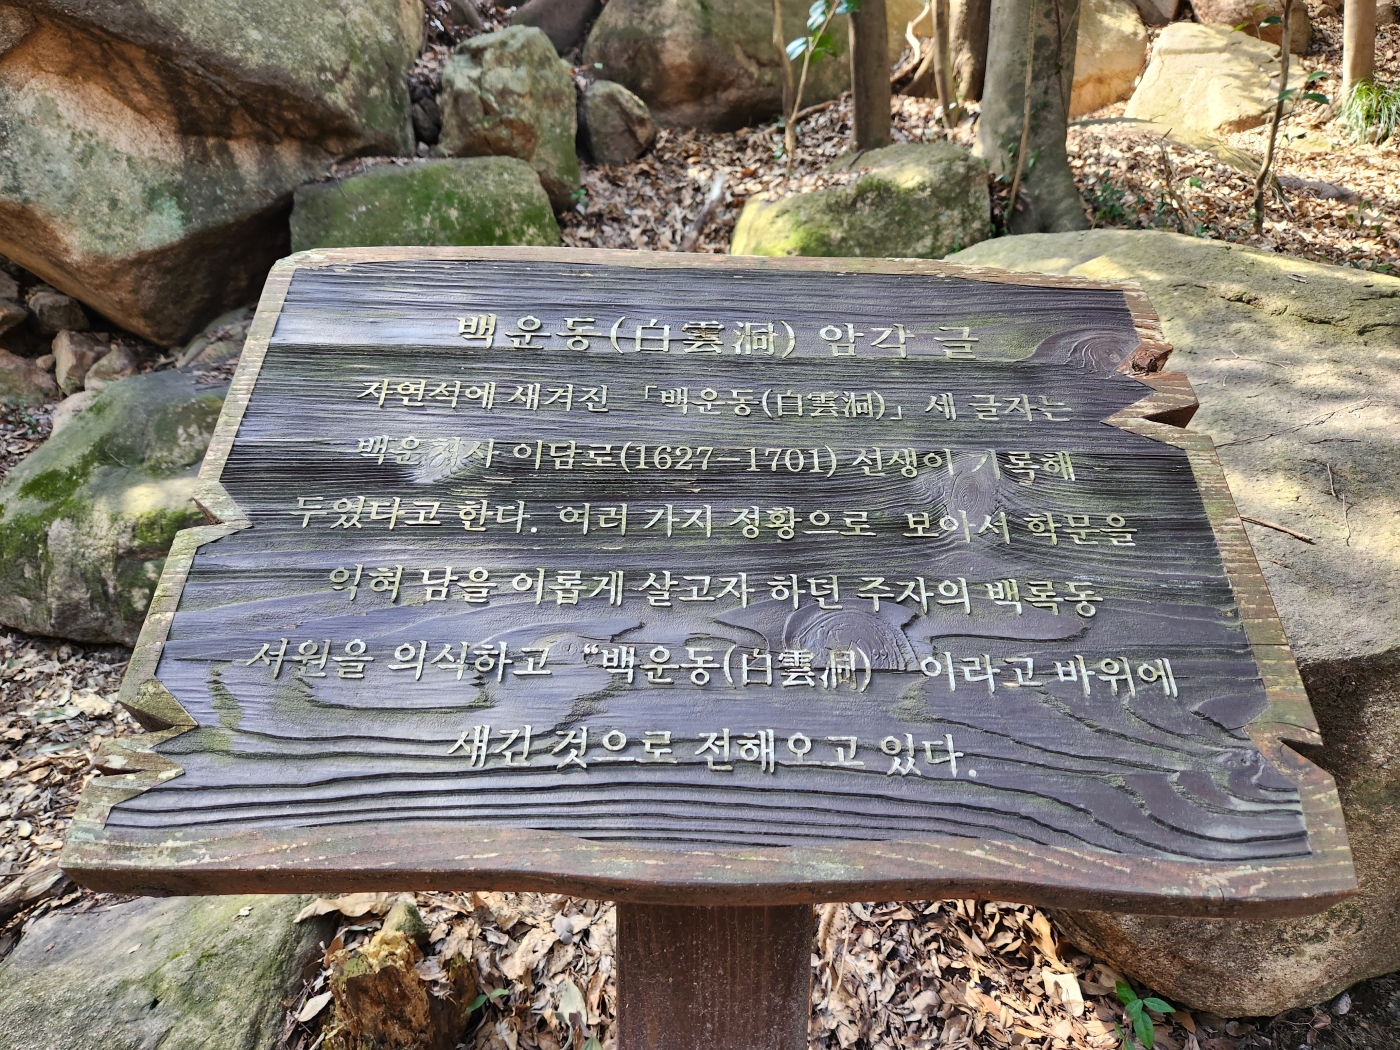 백운동(白雲洞) 암각 글
자연석에 새겨진 「백운동(白雲洞)」 세 글자는
백운처사 이담로(1627-1701) 선생이 기록해
두었다고 한다. 여러 가지 정황으로 보아서 학문을
익혀 남을 이롭게 살고자 하던 주자의 백록동
서원을 의식하고 “백운동(白雲洞) 이라고 바위에
새긴 것으로 전해오고 있다.